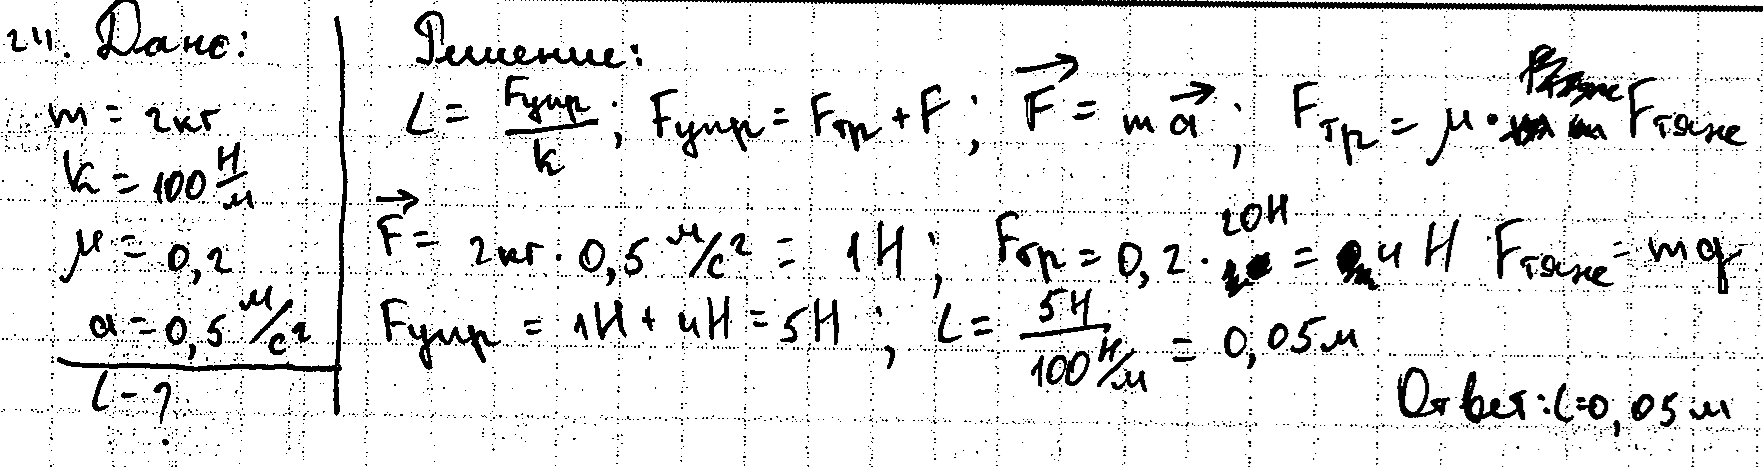 24. Дано:
m = 2кг
k = 100 Н/м
μ = 0,2
a = 0,5 м/с²
L - ?
Решение:
L = Fупр/k ; Fупр = Fтр + F ; F⃗ = ma⃗ ; Fтр = μ · Fтяж
F⃗ = 2кг · 0,5 м/с² = 1Н ; Fтр = 0,2 · 20Н = 4Н Fтяж = mg
Fупр = 1Н + 4Н = 5Н ; L = 5Н/100 Н/м = 0,05м
Ответ: L=0,05м